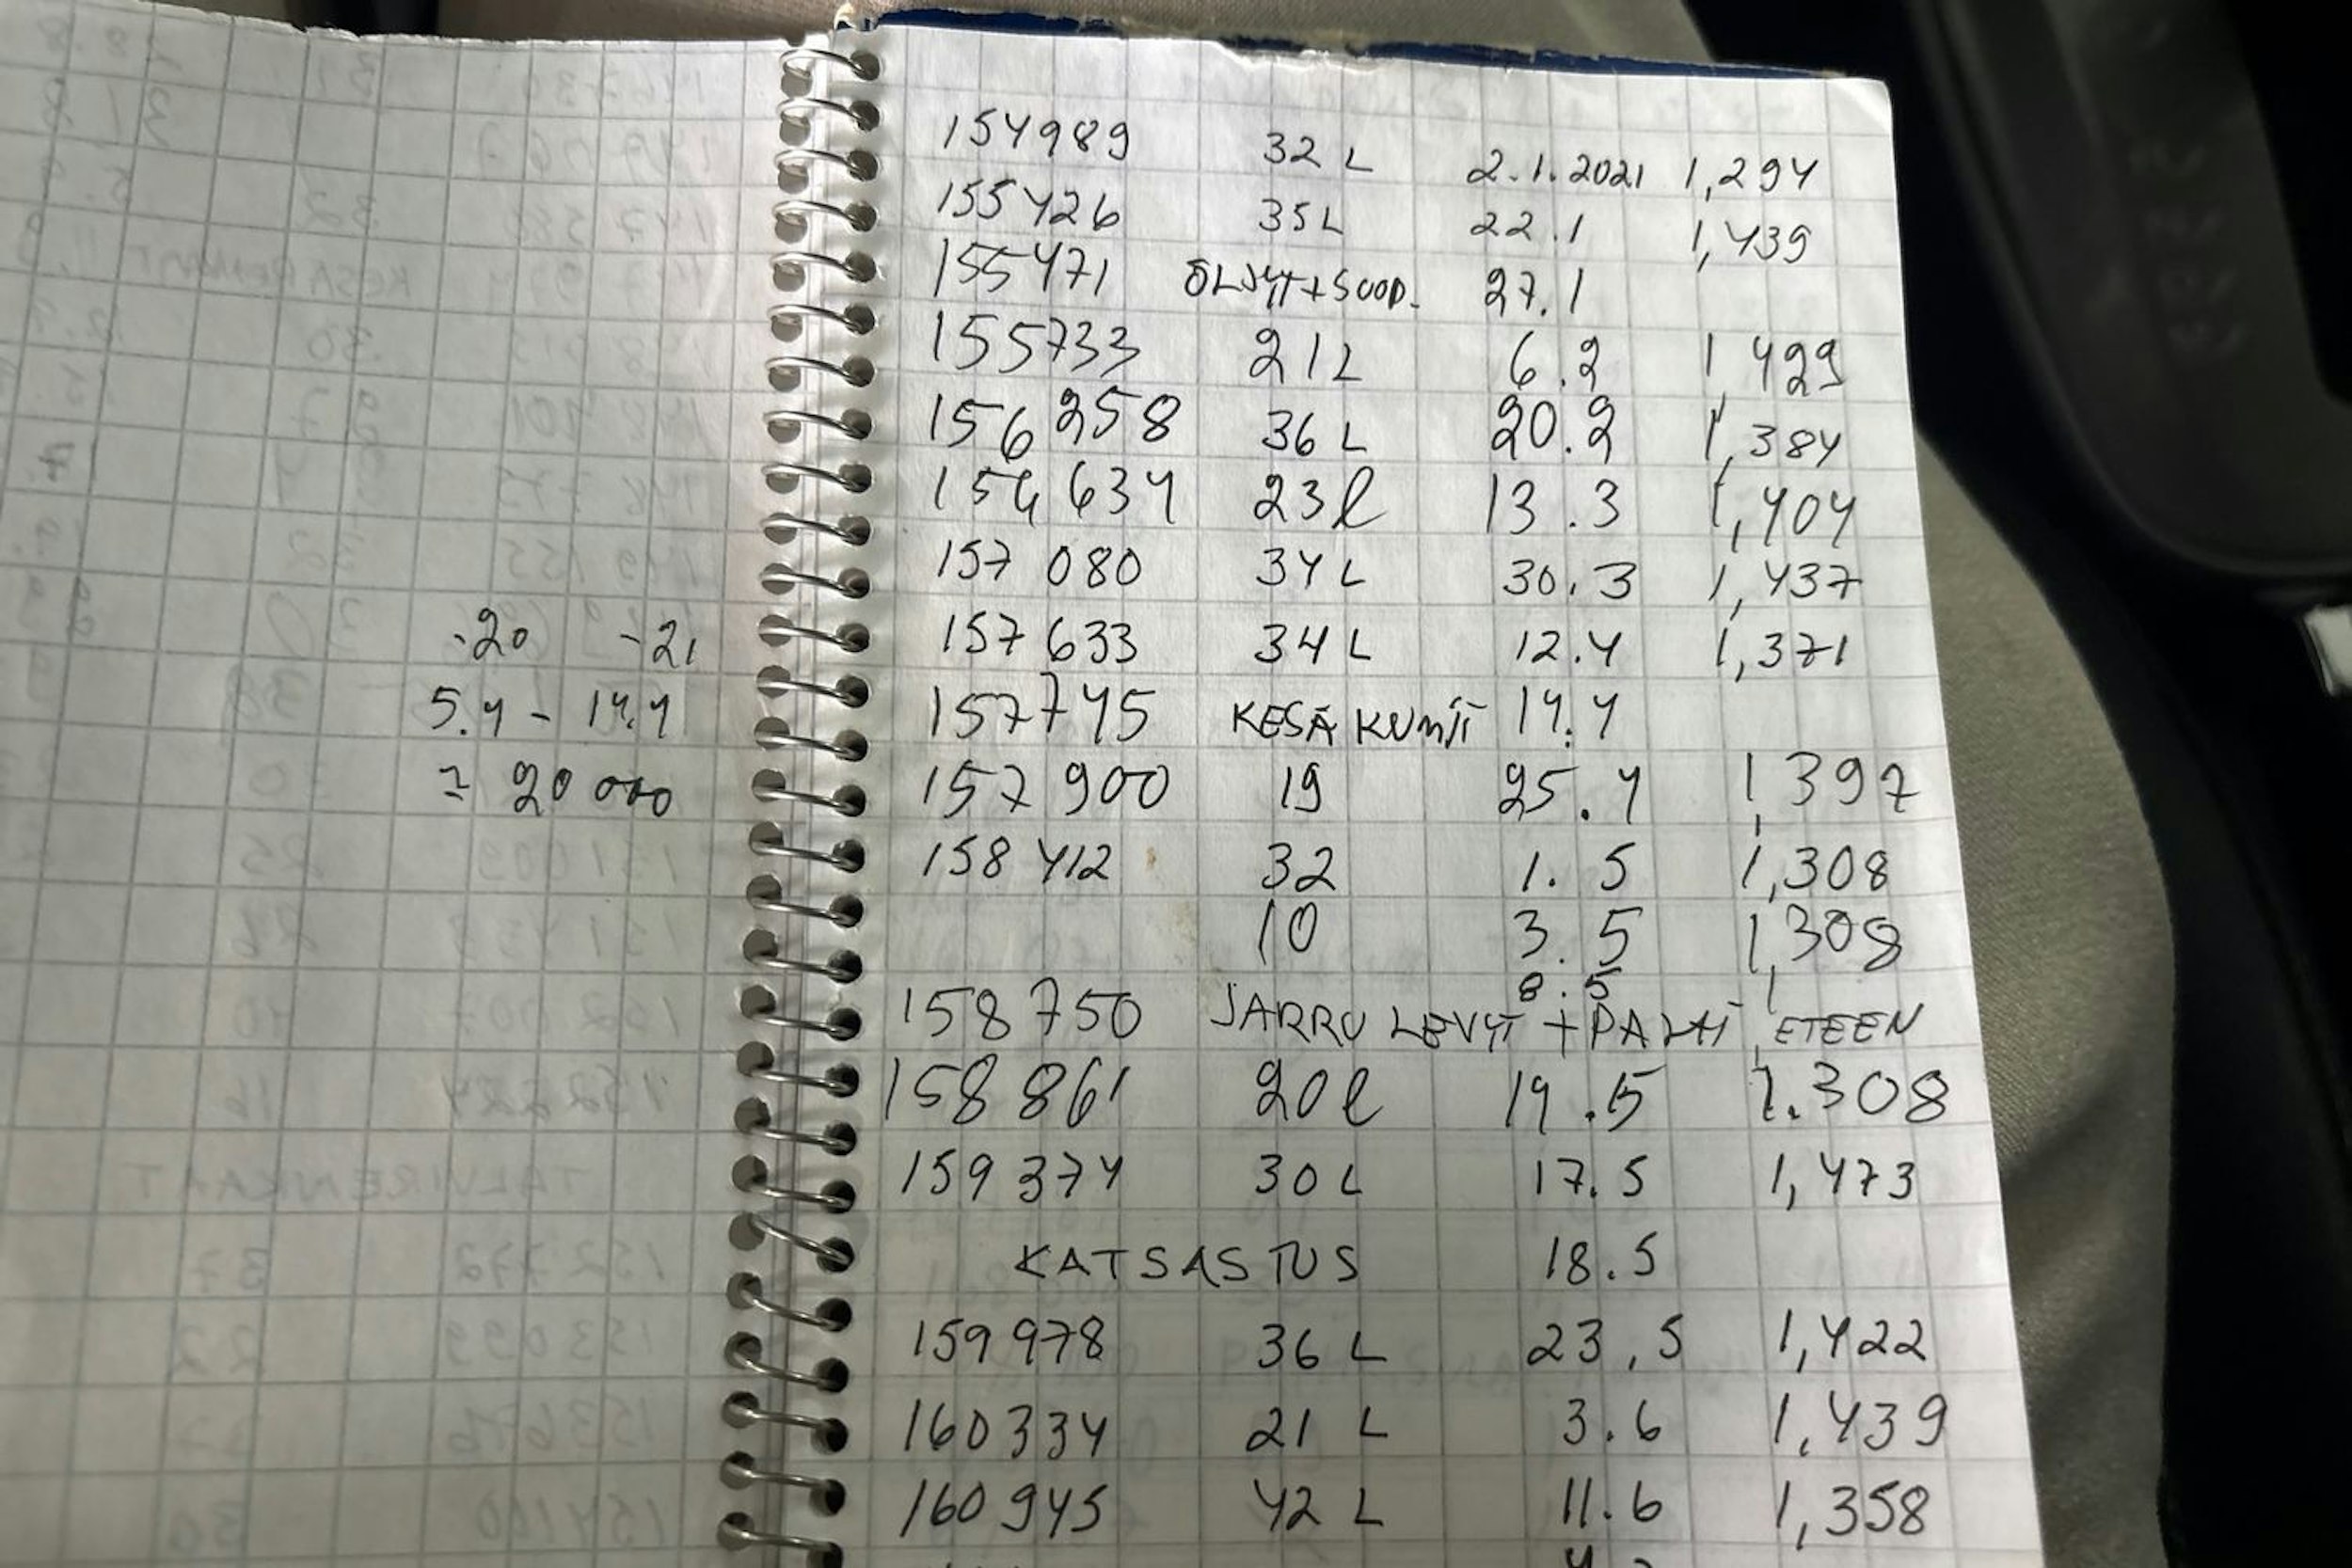 -20 -21
5.4 - 14.4
= 20 000
154989 32 L 2.1.2021 1,294
155426 35 L 22.1 1,439
155471 ÖLJYT+SUOD. 27.1
155733 21 L 6.2 1,429
156 258 36 L 20.2 1,384
156 634 23 l 13.3 1,404
157 080 34 L 30.3 1,437
157 633 34 L 12.4 1,371
157745 KESÄ KUMIT 14.4
157 900 19 25.4 1,397
158 412 32 1.5 1,308
10 3.5 1,308
8.5
158 750 JARRU LEVYT + PALAT ETEEN
158 861 20 l 14.5 1.308
159 374 30 L 17.5 1,473
KATSASTUS 18.5
159 978 36 L 23,5 1,422
160334 21 L 3.6 1,439
160 945 42 L 11.6 1,358